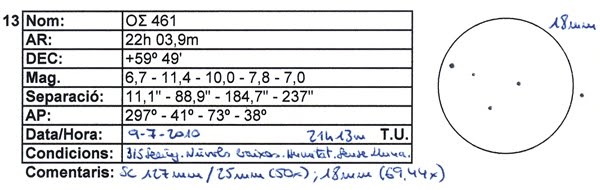 13 Nom: OΣ 461 18mm
AR: 22h 03,9m
DEC: +59º 49'
Mag. 6,7 - 11,4 - 10,0 - 7,8 - 7,0
Separació: 11,1" - 88,9" - 184,7" - 237"
AP: 297º - 41º - 73º - 38º
Data/Hora: 9-7-2010 21h13m T.U.
Condicions: 3/5 Seeing. Núvols baixos. Humitat. Sense lluna.
Comentaris: SC 127mm/25mm (50x); 18mm (69,44x)